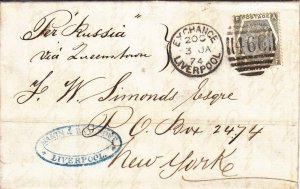 Per "Russia"
via Queenstown
EXCHANGE
20C
3 JA
74
LIVERPOOL
466
F. W. Simonds Esqre
P.O. Box 2474
LIVERPOOL.
New York.